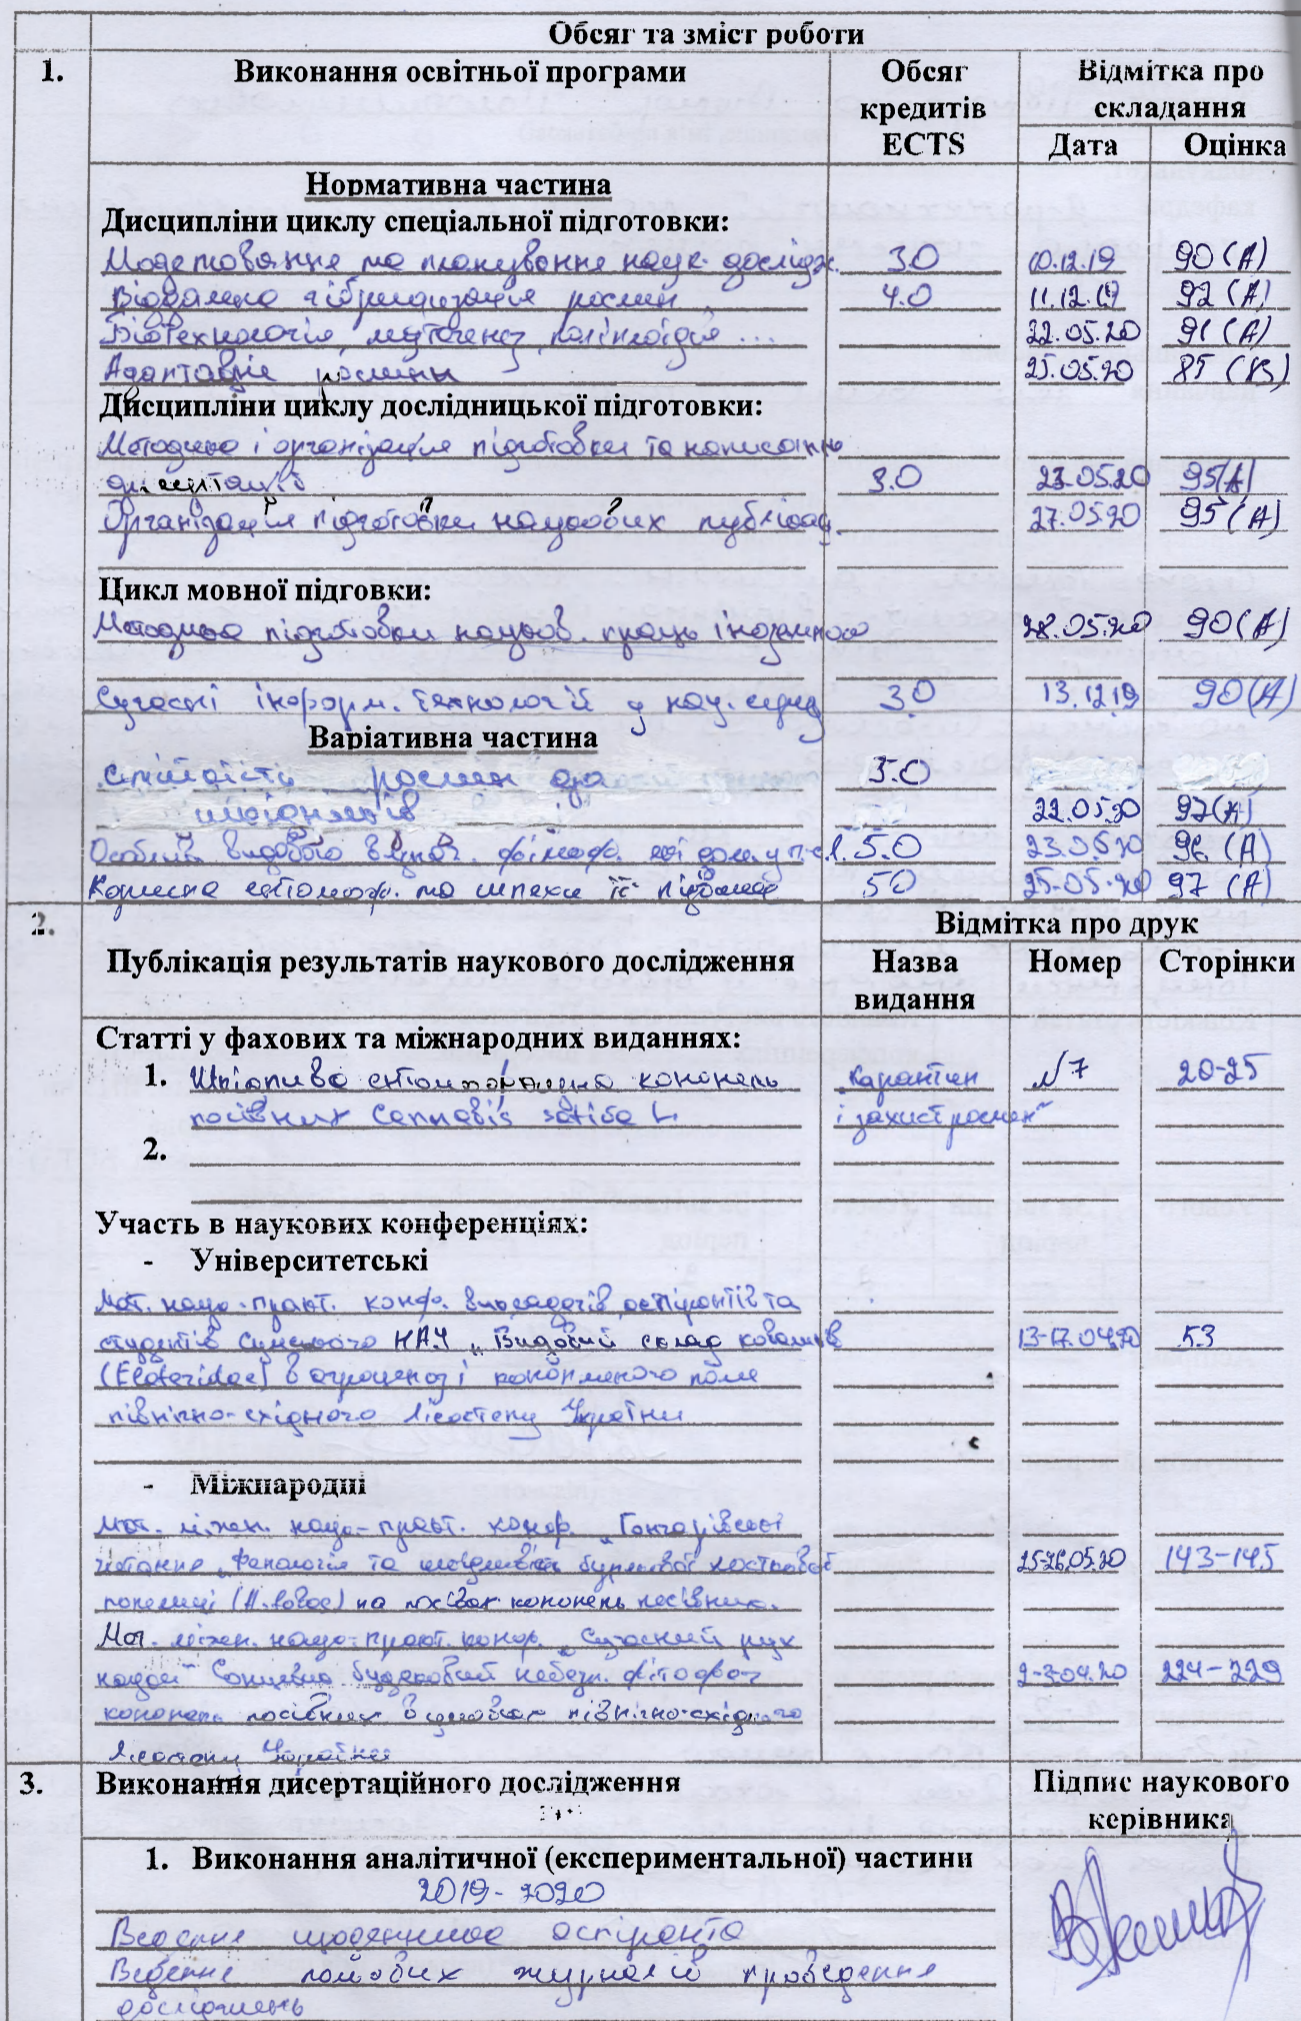 Обсяг та зміст роботи
1. Виконання освітньої програми Обсяг кредитів ECTS Відмітка про складання
Дата Оцінка
Нормативна частина
Дисципліни циклу спеціальної підготовки:
Моделювання та планування наук. дослідж. 3.0 10.12.19 90 (A)
Віддалена гібридизація рослин 4.0 11.12.19 92 (A)
Біотехнологія, мутагенез, поліплоїдія ... 22.05.20 91 (A)
Адаптація рослин 25.05.20 85 (B)
Дисципліни циклу дослідницької підготовки:
Методика і організація підготовки та написання
дисертації 3.0 23.05.20 95(A)
Організація підготовки наукових публікац. 27.05.20 95 (A)
Цикл мовної підговки:
Методика підготовки науков. праць іноземною 28.05.20 90(A)
Сучасні інформ. технології у наук. 3.0 13.12.19 90(A)
Варіативна частина
Стійкість рослин до 5.0
шкідників 22.05.20 97(A)
Особлив. видового 5.0 23.05.20 96 (A)
Корисна ентомоф. та шляхи її 5.0 25.05.20 97 (A)
2. Публікація результатів наукового дослідження Відмітка про друк
Назва видання Номер Сторінки
Статті у фахових та міжнародних виданнях:
1. конопель „Карантин №7 20-25
посівних Cannabis sativa L. і захист рослин"
2.
Участь в наукових конференціях:
- Університетські
Мат. наук.-практ. конф. викладачів, аспірантів та
студентів Сумського НАУ „Видовий склад коваликів 13-17.04.20 53
(Elateridae) в агроценозі конопляного поля
північно-східного Лісостепу України
- Міжнародні
Мат. міжн. наук.-практ. конф. „Гончарівські
читання „Фенологія та шкідливість бурякової листкової 25-26.05.20 143-145
попелиці (A. fabae) на посівах конопель посівних.
Мат. міжн. наук.-практ. конф. „Сучасний рух
науки" 2-3.04.20 224-229
конопель посівних в умовах північно-східного
Лісостепу України
3. Виконання дисертаційного дослідження Підпис наукового керівника
1. Виконання аналітичної (експериментальної) частини
2019-2020
Ведення щоденника аспіранта
Ведення польових журналів проведення
досліджень